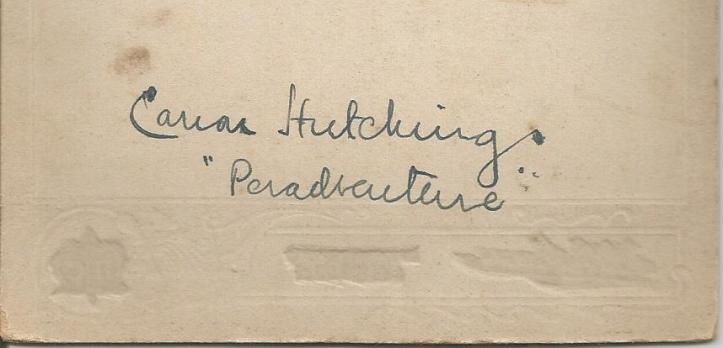 Canon Hutchings
"Peradventure"